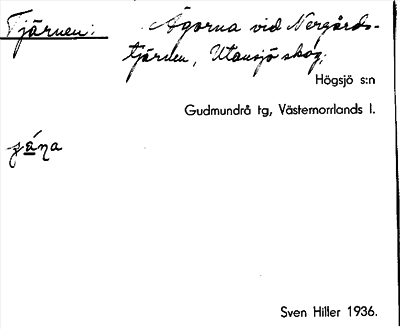 Tjärnen: Ägorna vid Nergårds-
tjärnen, Utansjö skog;
Högsjö s:n
Gudmundrå tg, Västernorrlands l.
Sven Hiller 1936.